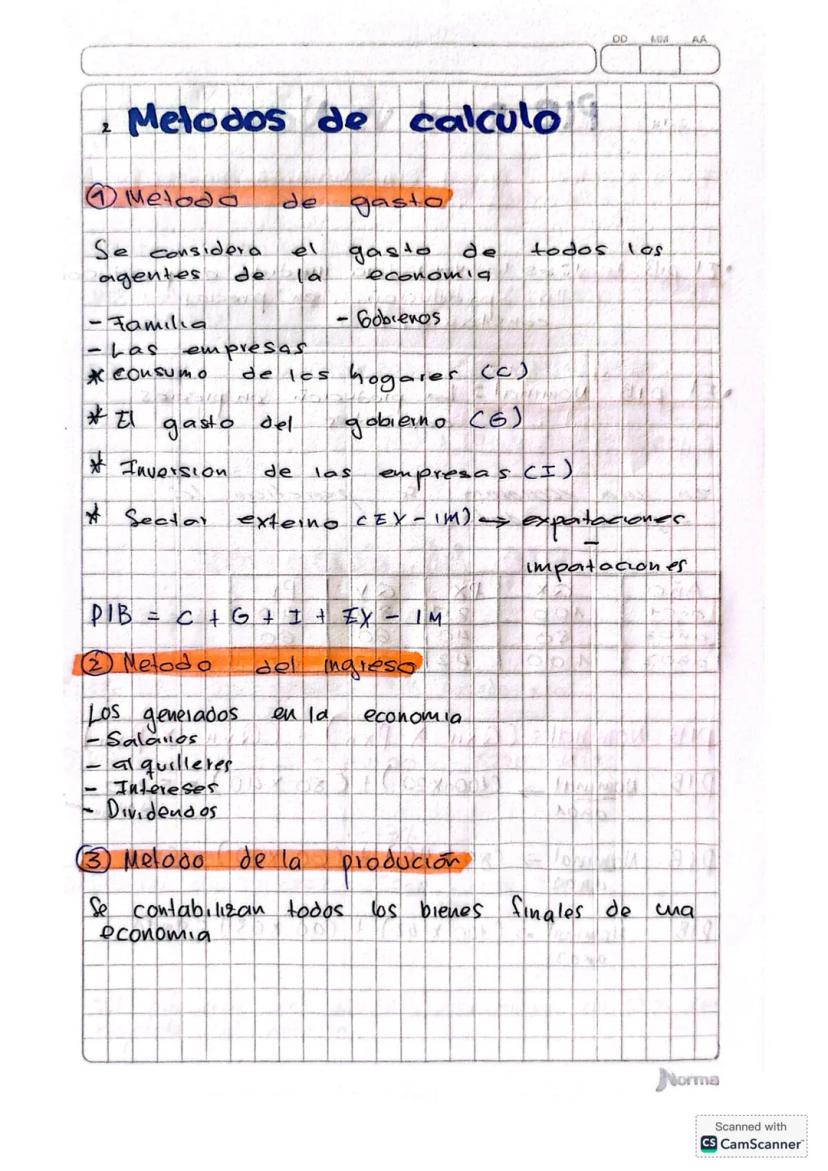 DD MM AA
2 Metodos de calculo
① Metodo de gasto
Se considera el gasto de todos los
agentes de la economia
- Familia - Gobienos
- Las empresas
* consumo de los hogares (C)
* El gasto del gobierno (G)
* Inversion de las empresas (I)
* Sector externo (EX - IM) → expotaciones
-
impotaciones
PIB = C + G + I + EX - IM
② Metodo del ingreso
Los generados en la economia
- Salarios
- alquilleres
- Intereses
- Dividendos
③ Metodo de la produción
Se contabilizan todos los bienes finales de una
economia
Norma
Scanned with
CS CamScanner